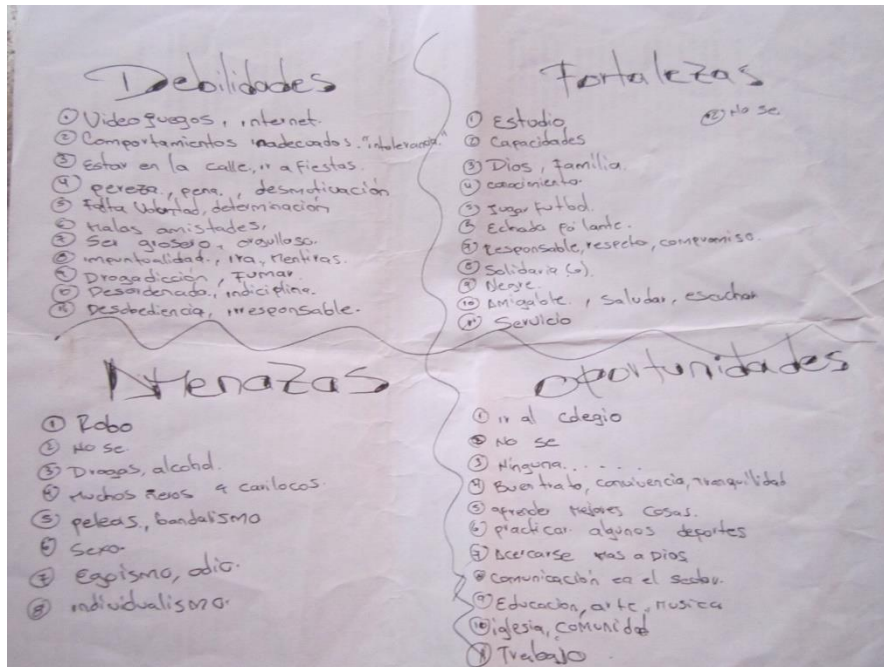 Debilidades
① Videojuegos, internet.
② Comportamientos inadecuados. "intolerancia."
③ Estar en la calle, ir a fiestas.
④ pereza, pena, desmotivación
⑤ Falta Voluntad, determinación
⑥ Malas amistades.
⑦ Ser grosero, orgulloso.
⑧ impuntualidad, ira, mentiras.
⑨ Drogadicción, Fumar
⑩ Desordenado, indiciplina.
⑪ Desobediencia, irresponsable.
Fortalezas
① Estudio
⑫ No se
② Capacidades
③ Dios, familia.
④ conocimiento.
⑤ Jugar futbol.
⑥ Echada pa'lante.
⑦ Responsable, respeto, compromiso.
⑧ Solidaria (o).
⑨
⑩ Amigable, saludar, escuchar
⑪ Servicio
Amenazas
① Robo
② No se
③ Drogas, alcohol.
④ Muchos ñeros y carilocos.
⑤ peleas, bandalismo
⑥ Sexo.
⑦ Egoismo, odio.
⑧ individualismo.
Oportunidades
① ir al colegio
② No se
③ Ninguna......
④ Buen trato, convivencia, tranquilidad
⑤ aprender mejores cosas.
⑥ practicar algunos deportes
⑦ Acercarse mas a Dios
⑧ comunicación en el sector.
⑨ Educación, arte, musica
⑩ iglesia, comunidad
⑪ Trabajo